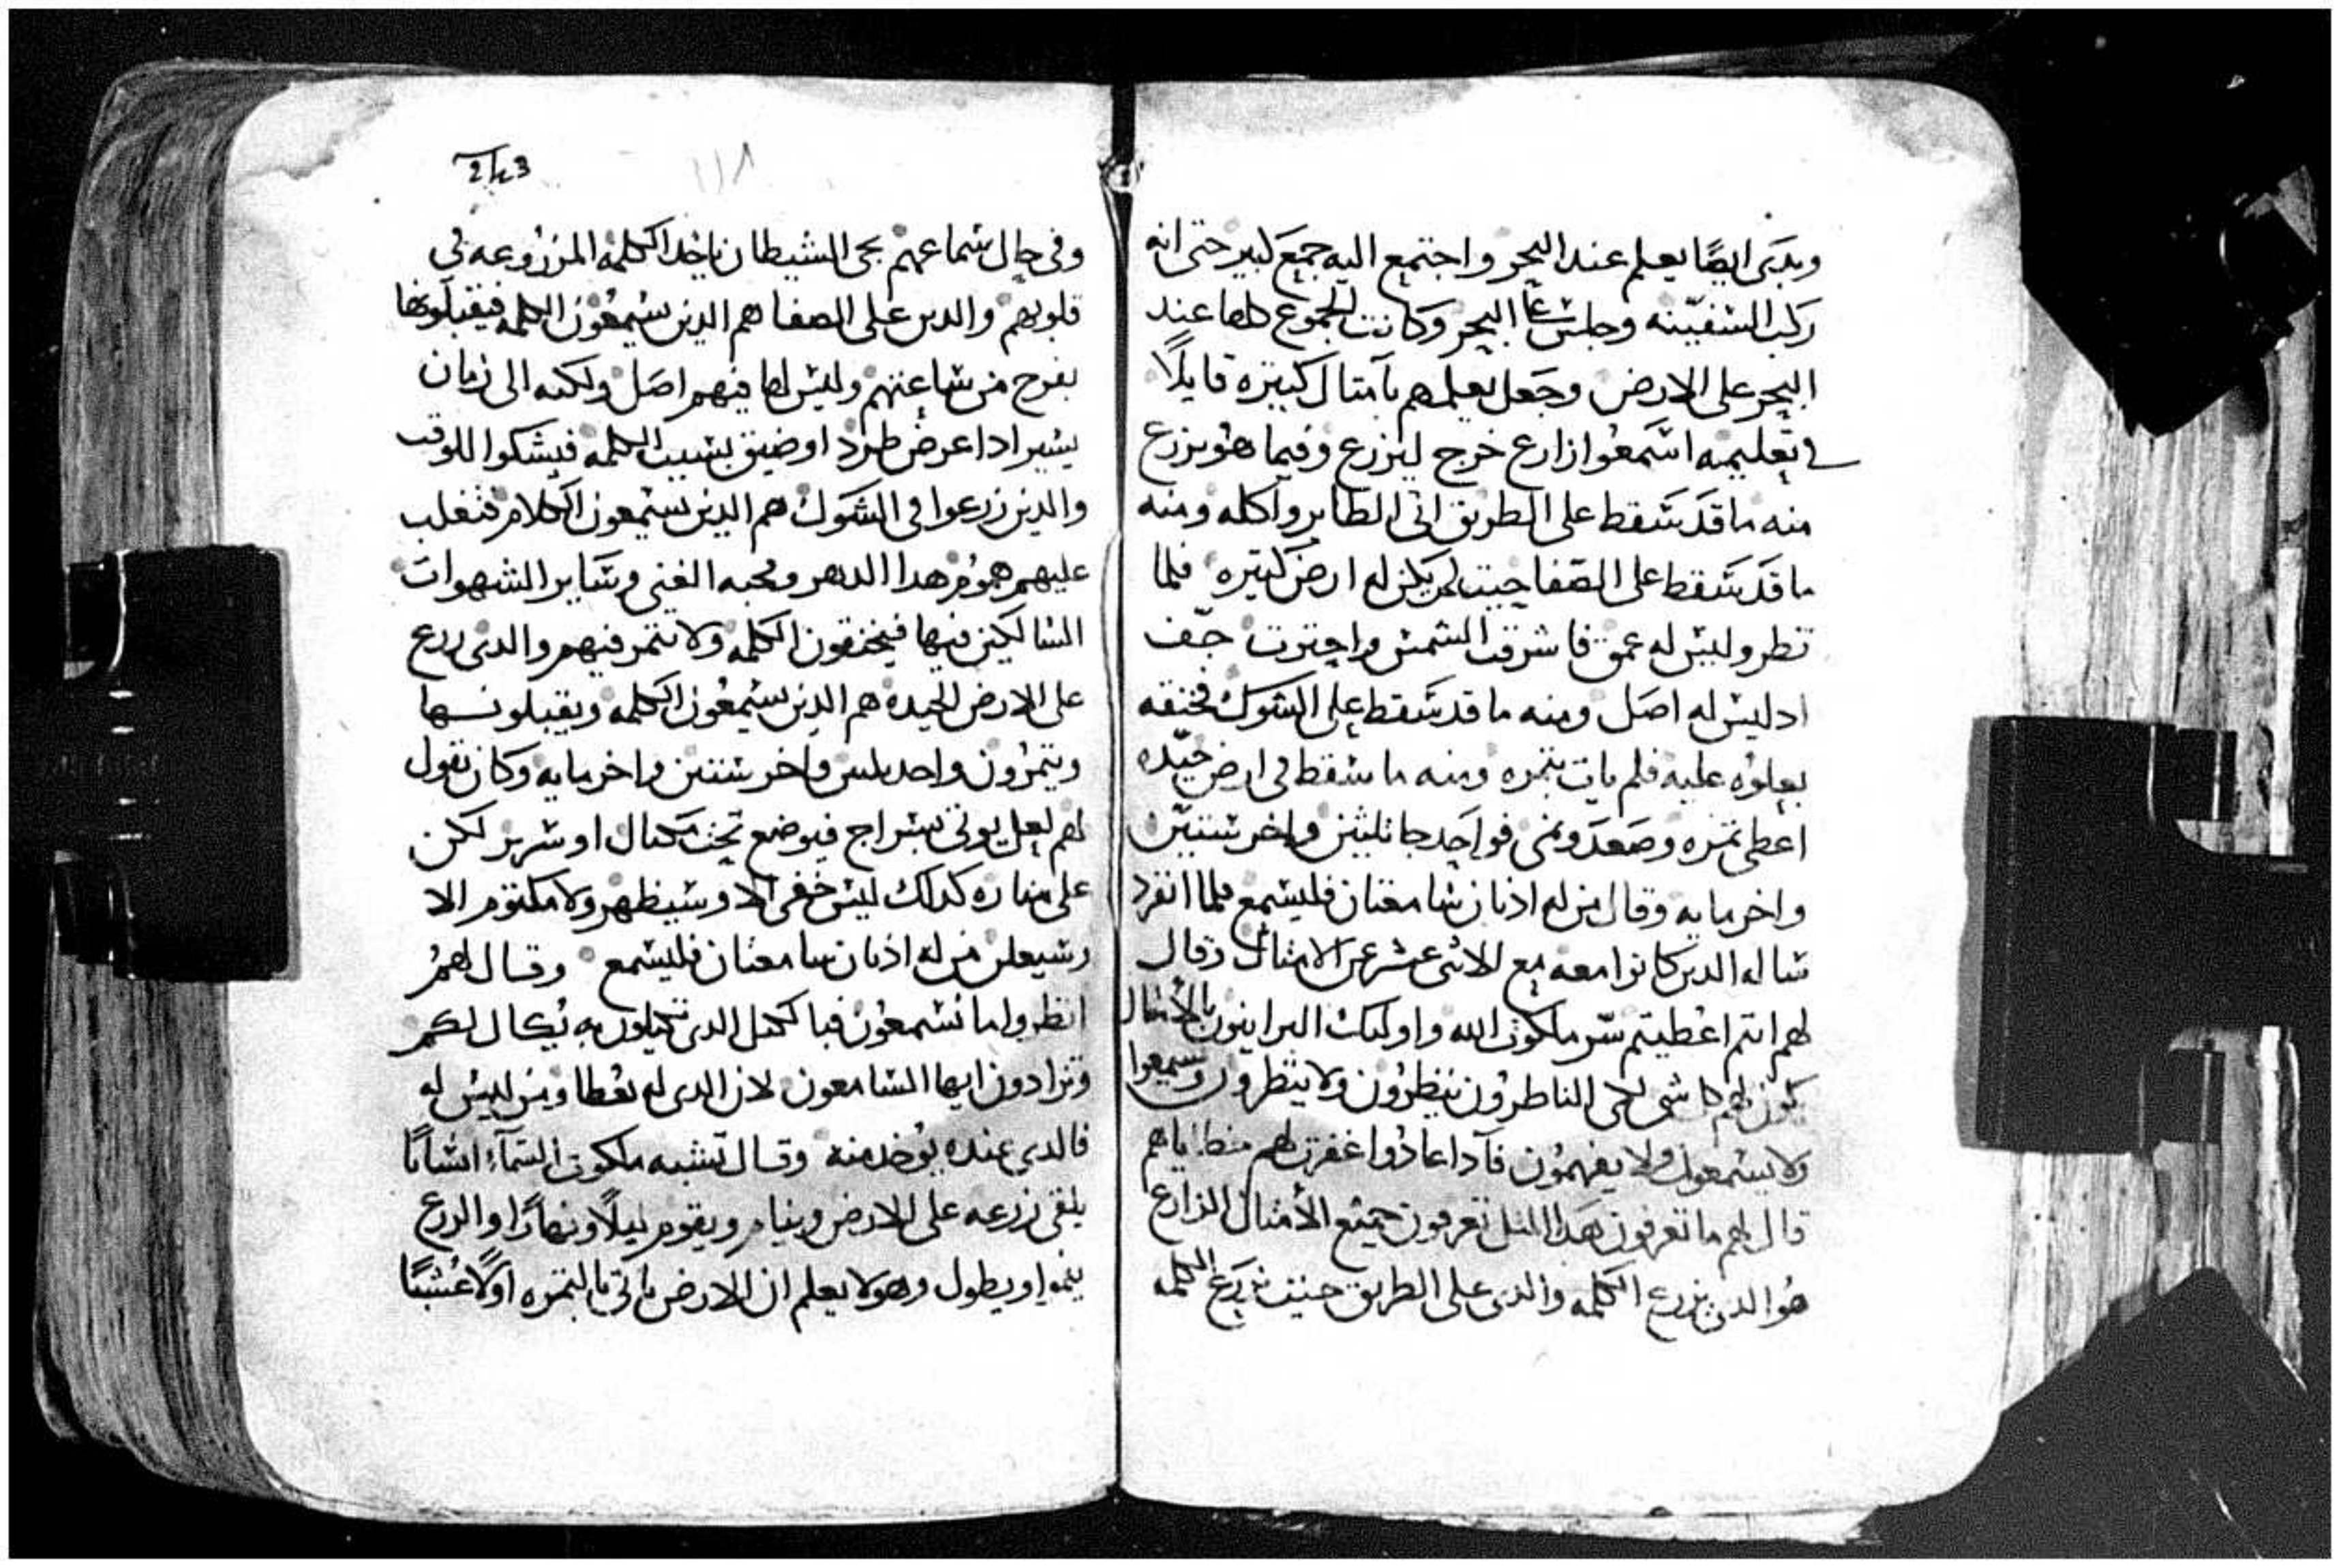 وبدى ايضًا يعلم عند البحر واجتمع اليه جمع كبير حتى انه
ركب السفينه وجلس على البحر وكانت الجموع كلها عند
البحر على الارض وجعل يعلمهم بامتال كتيره قايلًا
في تعليمه اسمعوا زارع خرج ليزرع وفيما هو يزرع
منه ما قد سقط على الطريق اتى الطاير واكله ومنه
ما قد سقط على الصفا حيت لم يكن له ارض كتيره فلما
نظر وليس له عمق فاشرقت الشمس واحترت جف
اد ليس له اصل ومنه ما قد سقط على الشوك فخنقه
بعلوه عليه فلم يات بتمره ومنه ما سقط في ارض جيده
اعطى تمره وصعد ونمى فواحد جا تلتين واخر ستين
واخر مايه وقال من له ادنان سامعتان فليسمع فلما انفرد
ساله الدين كانوا معه مع الاتنى عشر عن الامتال وقال
لهم انتم اعطيتم سر ملكوت الله واوليك البرانيون بالأمتال
يكون لهم كل شي لكى الناطرون ينظرون ولا ينظرون ويسمعوا
ولا يسمعون ولا يفهمون فاداعادوا غفرت لهم خطاياهم
قال لهم ما تعرفون هدا المتل تعرفون جميع الأمتال الزارع
هو الدى يزرع الكلمه والدى على الطريق حيت تزرع الكلمه
243
١١٨
وفى حال سماعهم يجى الشيطان ياخد الكلمه المزروعه في
قلوبهم والدين على الصفا هم الدين يسمعون الكلمه فيقبلونها
بفرح من ساعتهم وليس لها فيهم اصل ولكنه الى زمان
يسير ادا عرض طرد او ضيق بسبب الكلمه فيشكوا للوقت
والدين زرعوا فى الشوك هم الدين يسمعون الكلام فتغلب
عليهم هموم هدا الدهر ومحبه الغنى وساير الشهوات
السالكين فيها فيخنقون الكلمه ولا تتمر فيهم والدى زرع
على الارض الجيده هم الدين يسمعون الكلمه ويقبلونها
ويتمرون واحد تلتين واخر ستين واخر مايه وكان يقول
لهم لعل يوتى بسراج فيوضع تحت مكيال او سرير لكن
على مناره كدلك ليس خفى الا وسيظهر ولا مكتوم الا
وسيعلن من له ادنان سامعتان فليسمع وقال لهم
انظروا ما تسمعون فبالكيل الدى تكيلون به يكال لكم
وتزادون ايها السامعون لان الدى له يعطا ومن ليس له
فالدي عنده يوخد منه وقال تشبه ملكوت السماء انسانًا
يلقى زرعه على الارض وينام ويقوم ليلًا ونهارًا والزرع
ينموا ويطول وهو لا يعلم ان الارض تاتى بالتمره اولًا عشبًا